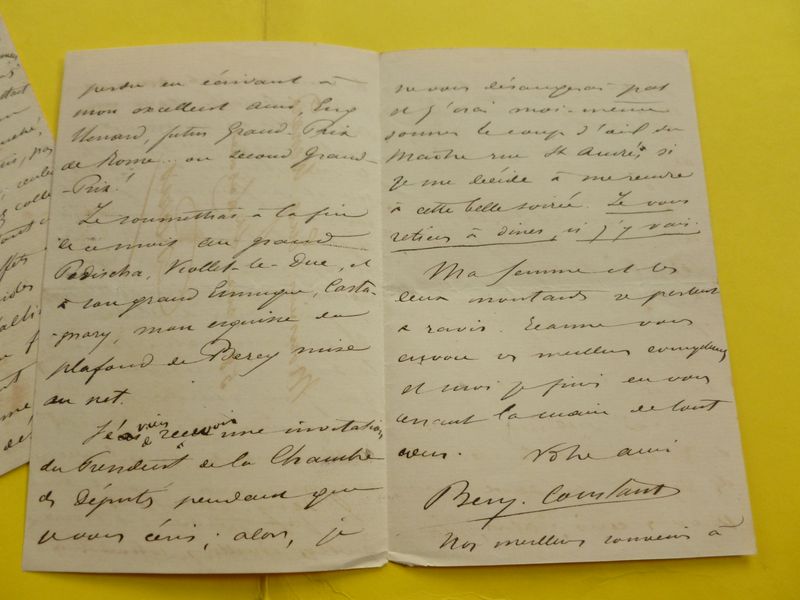 perdu en écrivant à
mon excellent ami, Eug
Menard, futur Grand-Prix
de Rome... ou second Grand-
-Prix!
Je soumettrai à la fin
de ce mois au grand
Padischa, Viollet-le-Duc, et
à son grand Eunuque, Casta-
gnary, mon esquisse du
plafond de Bercy mise
au net.
Je viens de recevoir une invitation
du Président de la Chambre
des Députés pendant que
je vous écris; alors, je
ne vous dérangerai pas
et j'irai moi-même
donner le coup d'œil du
Maître rue St André, si
je me décide à me rendre
à cette belle soirée. Je vous
retiens à dîner, si j'y vais.
Ma femme et les
deux moutards se portent
à ravir. Jeanne vous
envoie ses meilleurs compliments
et moi je finis en vous
serrant la main de tout
cœur. Votre ami
Benj. Constant
Nos meilleurs souvenirs à